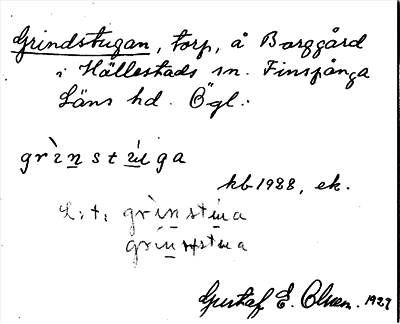 Grindstugan, torp, å Borggård
i Hällestads sn. Finspånga
Läns hd. Ögl.:
grìnstúga
kb 1988, ek.
L:t: grìnstúa
grinstua
Gustaf E. Olsson. 1927